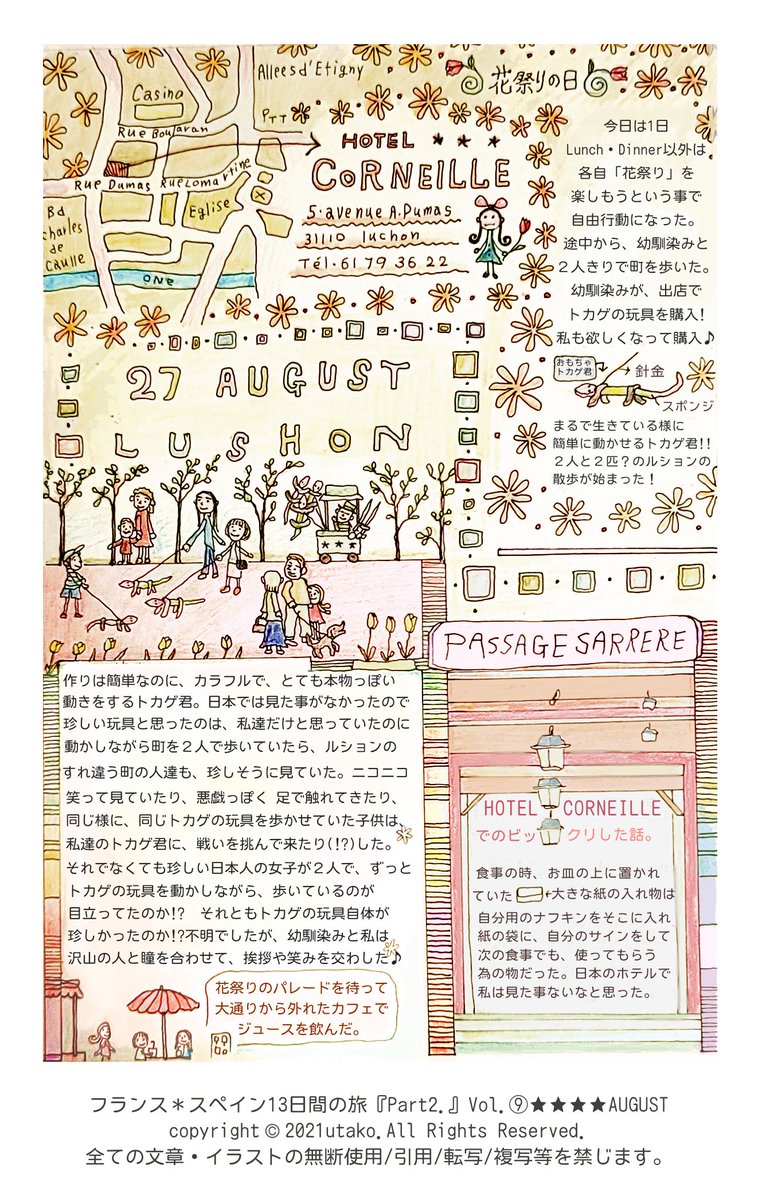 Allees d'Etigny
Casino
PTT
Rue Boularan
Rue Dumas Rue Lomartine
Eglise
Bd
charles
de
Caulle
ONE
HOTEL ★★★
CORNEILLE
5.avenue A.Dumas
31110 luchon
Tél.61 79 36 22
花祭りの日
今日は1日
Lunch・Dinner以外は
各自「花祭り」を
楽しもうという事で
自由行動になった。
途中から、幼馴染みと
2人きりで町を歩いた。
幼馴染みが、出店で
トカゲの玩具を購入!
私も欲しくなって購入♪
おもちゃ
トカゲ君
針金
スポンジ
まるで生きている様に
簡単に動かせるトカゲ君!!
2人と2匹？のルションの
散歩が始まった！
27 AUGUST
LUSHON
★★★
作りは簡単なのに、カラフルで、とても本物っぽい
動きをするトカゲ君。日本では見た事がなかったので
珍しい玩具と思ったのは、私達だけと思っていたのに
動かしながら町を2人で歩いていたら、ルションの
すれ違う町の人達も、珍しそうに見ていた。ニコニコ
笑って見ていたり、悪戯っぽく 足で触れてきたり、
同じ様に、同じトカゲの玩具を歩かせていた子供は、
私達のトカゲ君に、戦いを挑んで来たり(!?)した。
それでなくても珍しい日本人の女子が2人で、ずっと
トカゲの玩具を動かしながら、歩いているのが
目立ってたのか!? それともトカゲの玩具自体が
珍しかったのか!?不明でしたが、幼馴染みと私は
沢山の人と瞳を合わせて、挨拶や笑みを交わした♪
花祭りのパレードを待って
大通りから外れたカフェで
ジュースを飲んだ。
PASSAGE SARRERE
HOTEL CORNEILLE
でのビックリした話。
食事の時、お皿の上に置かれ
ていた ←大きな紙の入れ物は
自分用のナフキンをそこに入れ
紙の袋に、自分のサインをして
次の食事でも、使ってもらう
為の物だった。日本のホテルで
私は見た事ないなと思った。
フランス＊スペイン13日間の旅『Part2.』Vol.⑨★★★★AUGUST
copyright©2021utako.All Rights Reserved.
全ての文章・イラストの無断使用/引用/転写/複写等を禁じます。